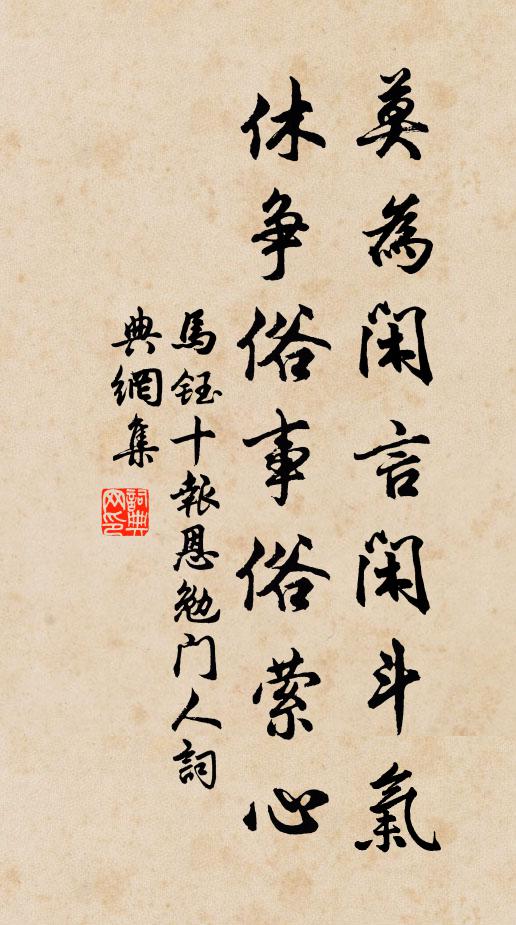 莫為閑言閑斗氣
休爭俗事俗縈心
馬鈺十報恩勉门人詞
典網集
詞典網印